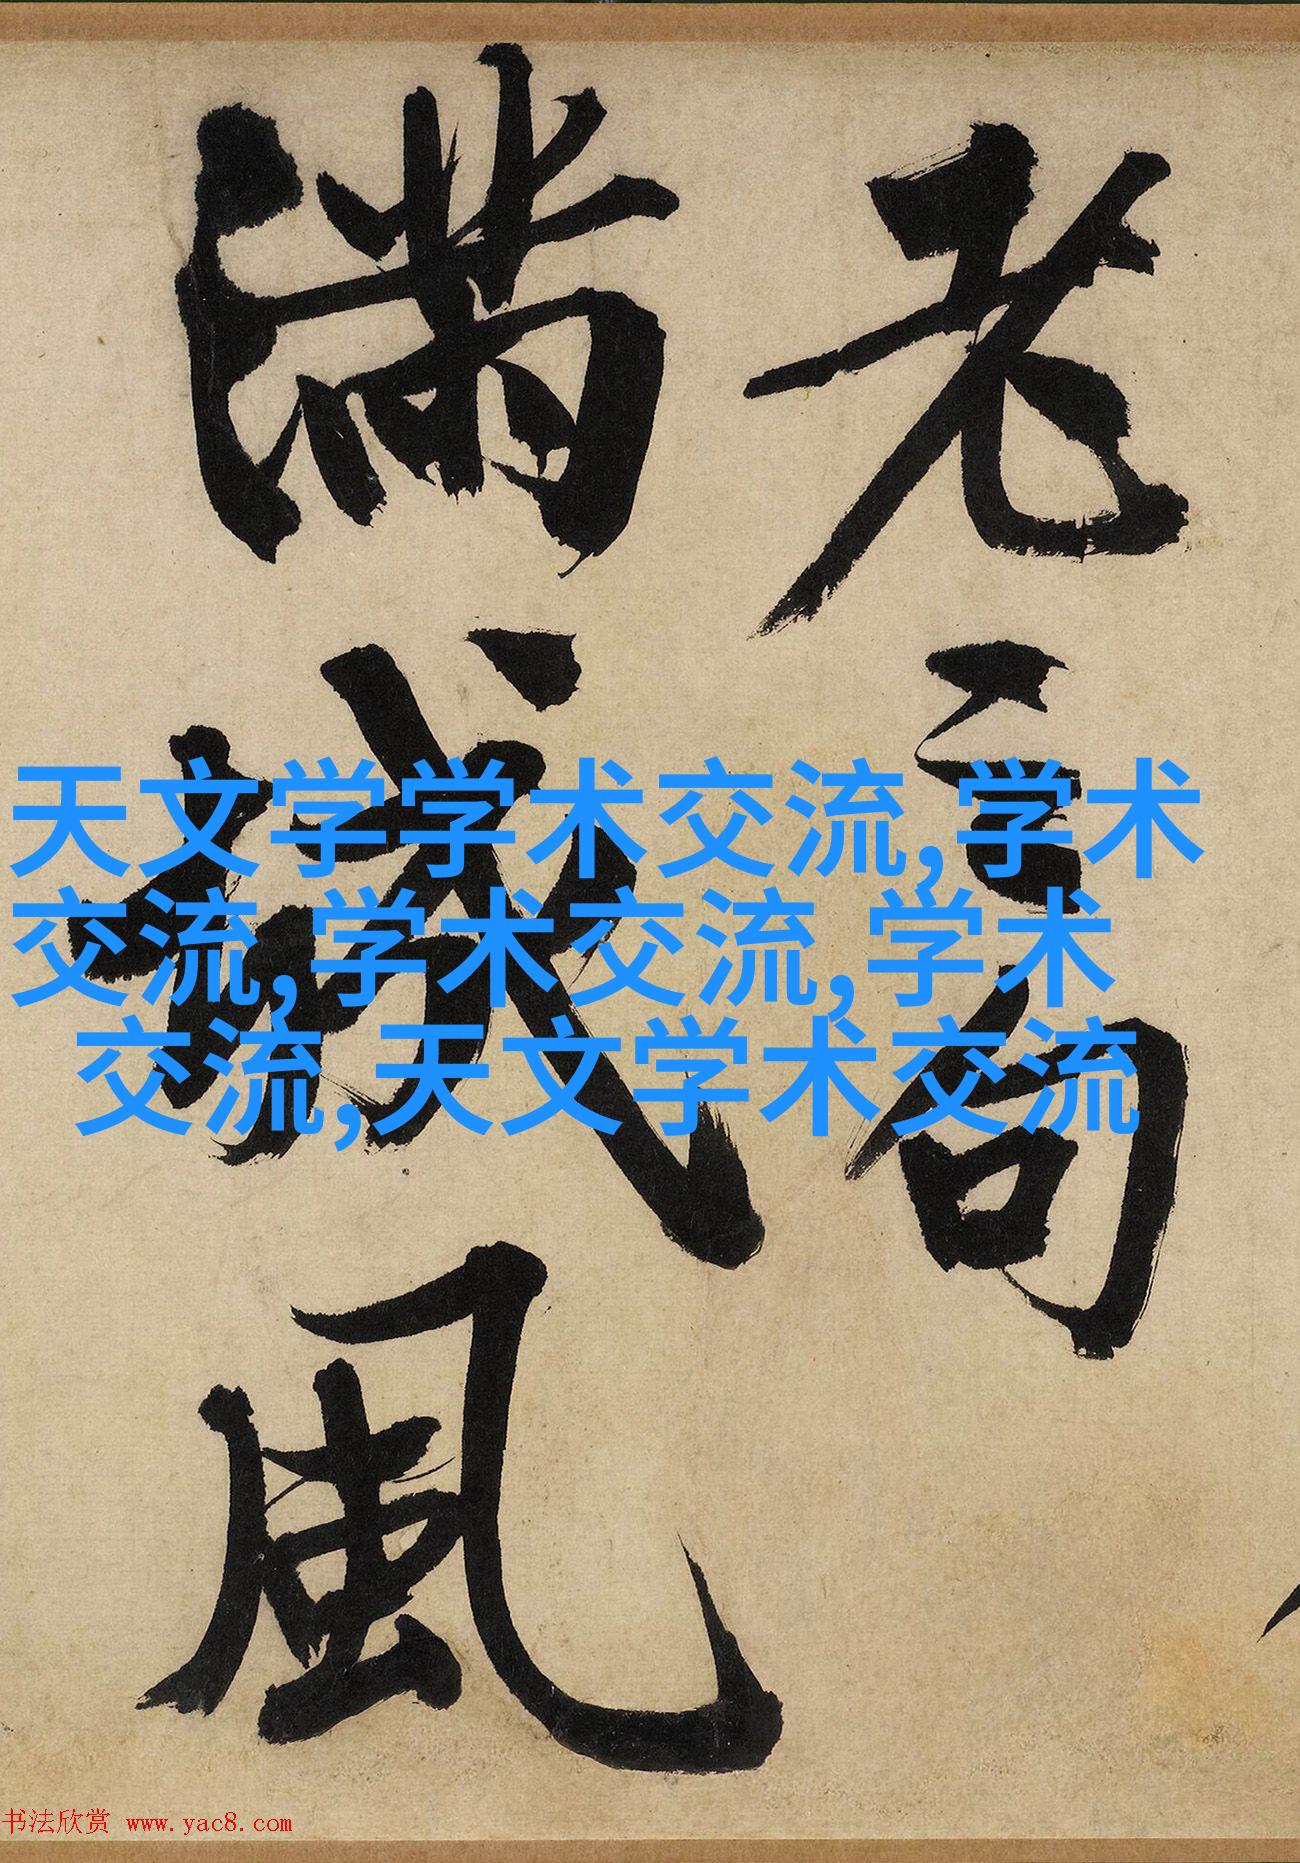 老句
滿城風
天文学学术交流,学术
交流,学术交流,学术
交流,天文学术交流
书法欣赏 www.yac8.com